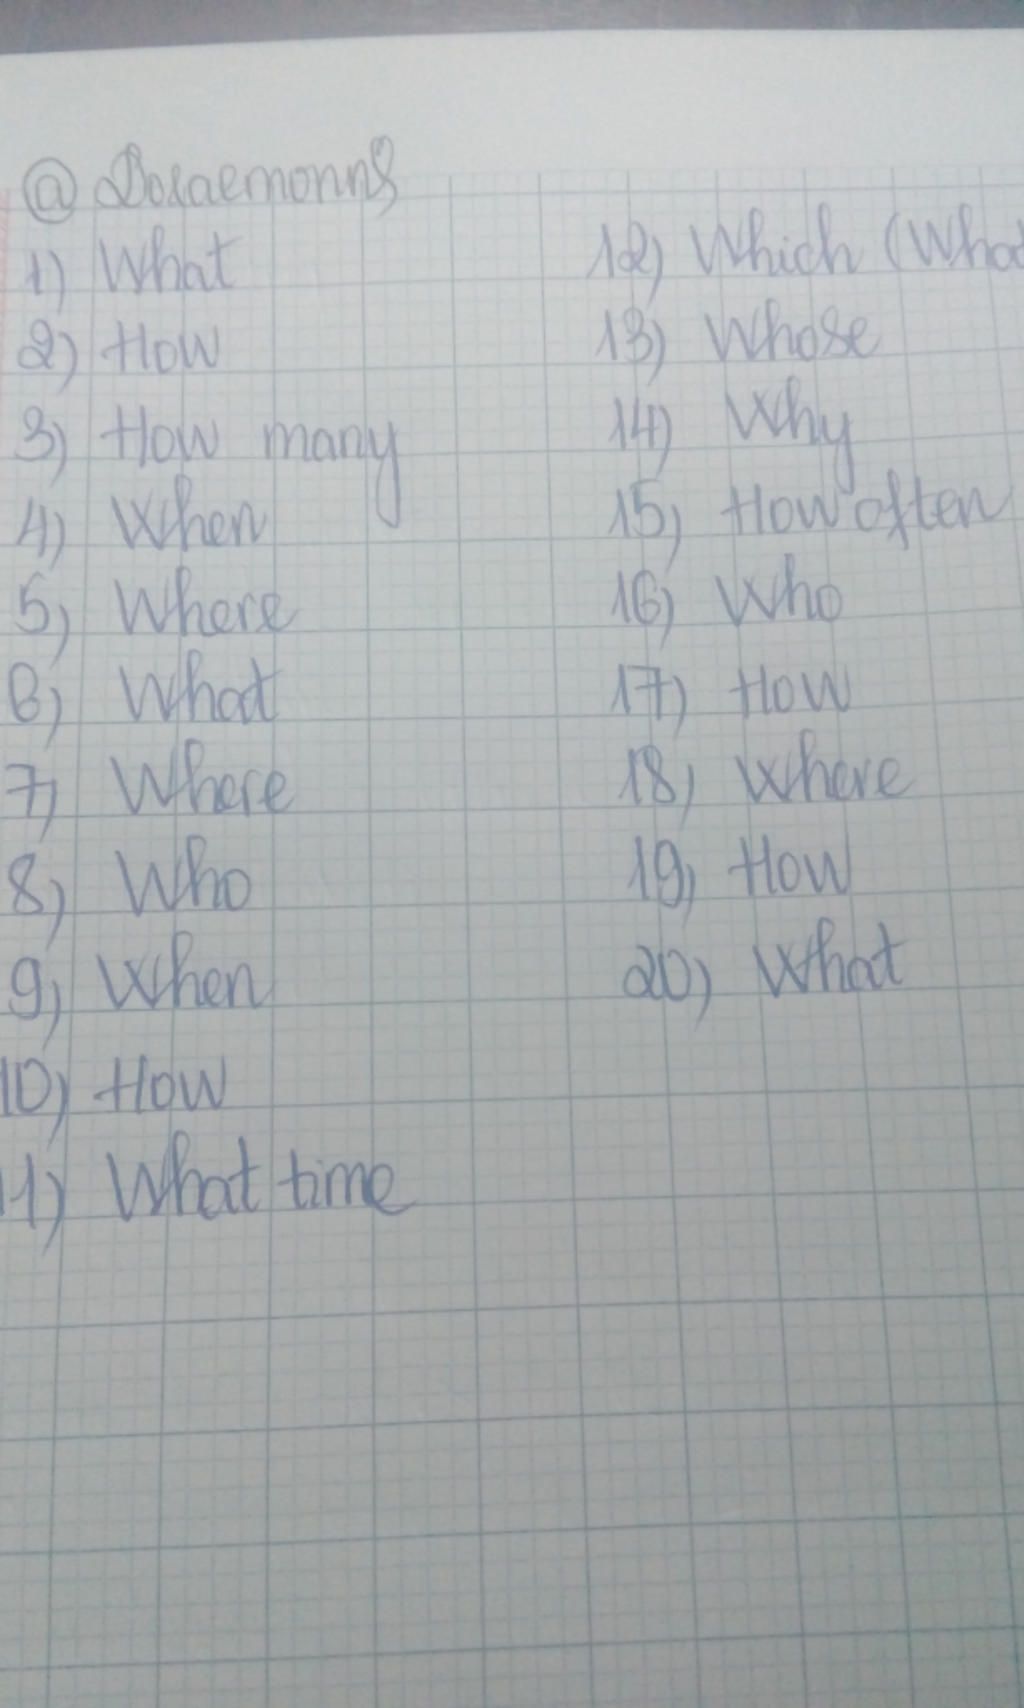 @ Doraemonn8
1) What
2) How
3) How many
4) When
5) Where
6) What
7) Where
8) Who
9) When
10) How
11) What time
12) Which (What
13) Whose
14) Why
15) How often
16) Who
17) How
18) Where
19) How
20) What